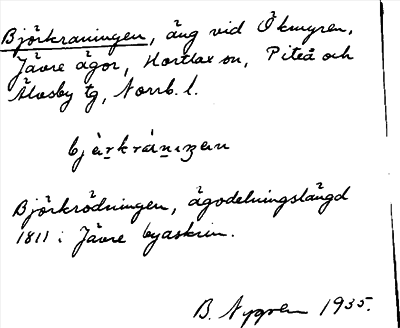 Björkraningen, äng vid Ökmyren,
Jävre ägor, Hortlax sn, Piteå och
Älvsby tg, Norrb. l.
Björkrödningen, ägodelningslängd
1811 i Jävre byaskrin.
B. Nygren 1935.